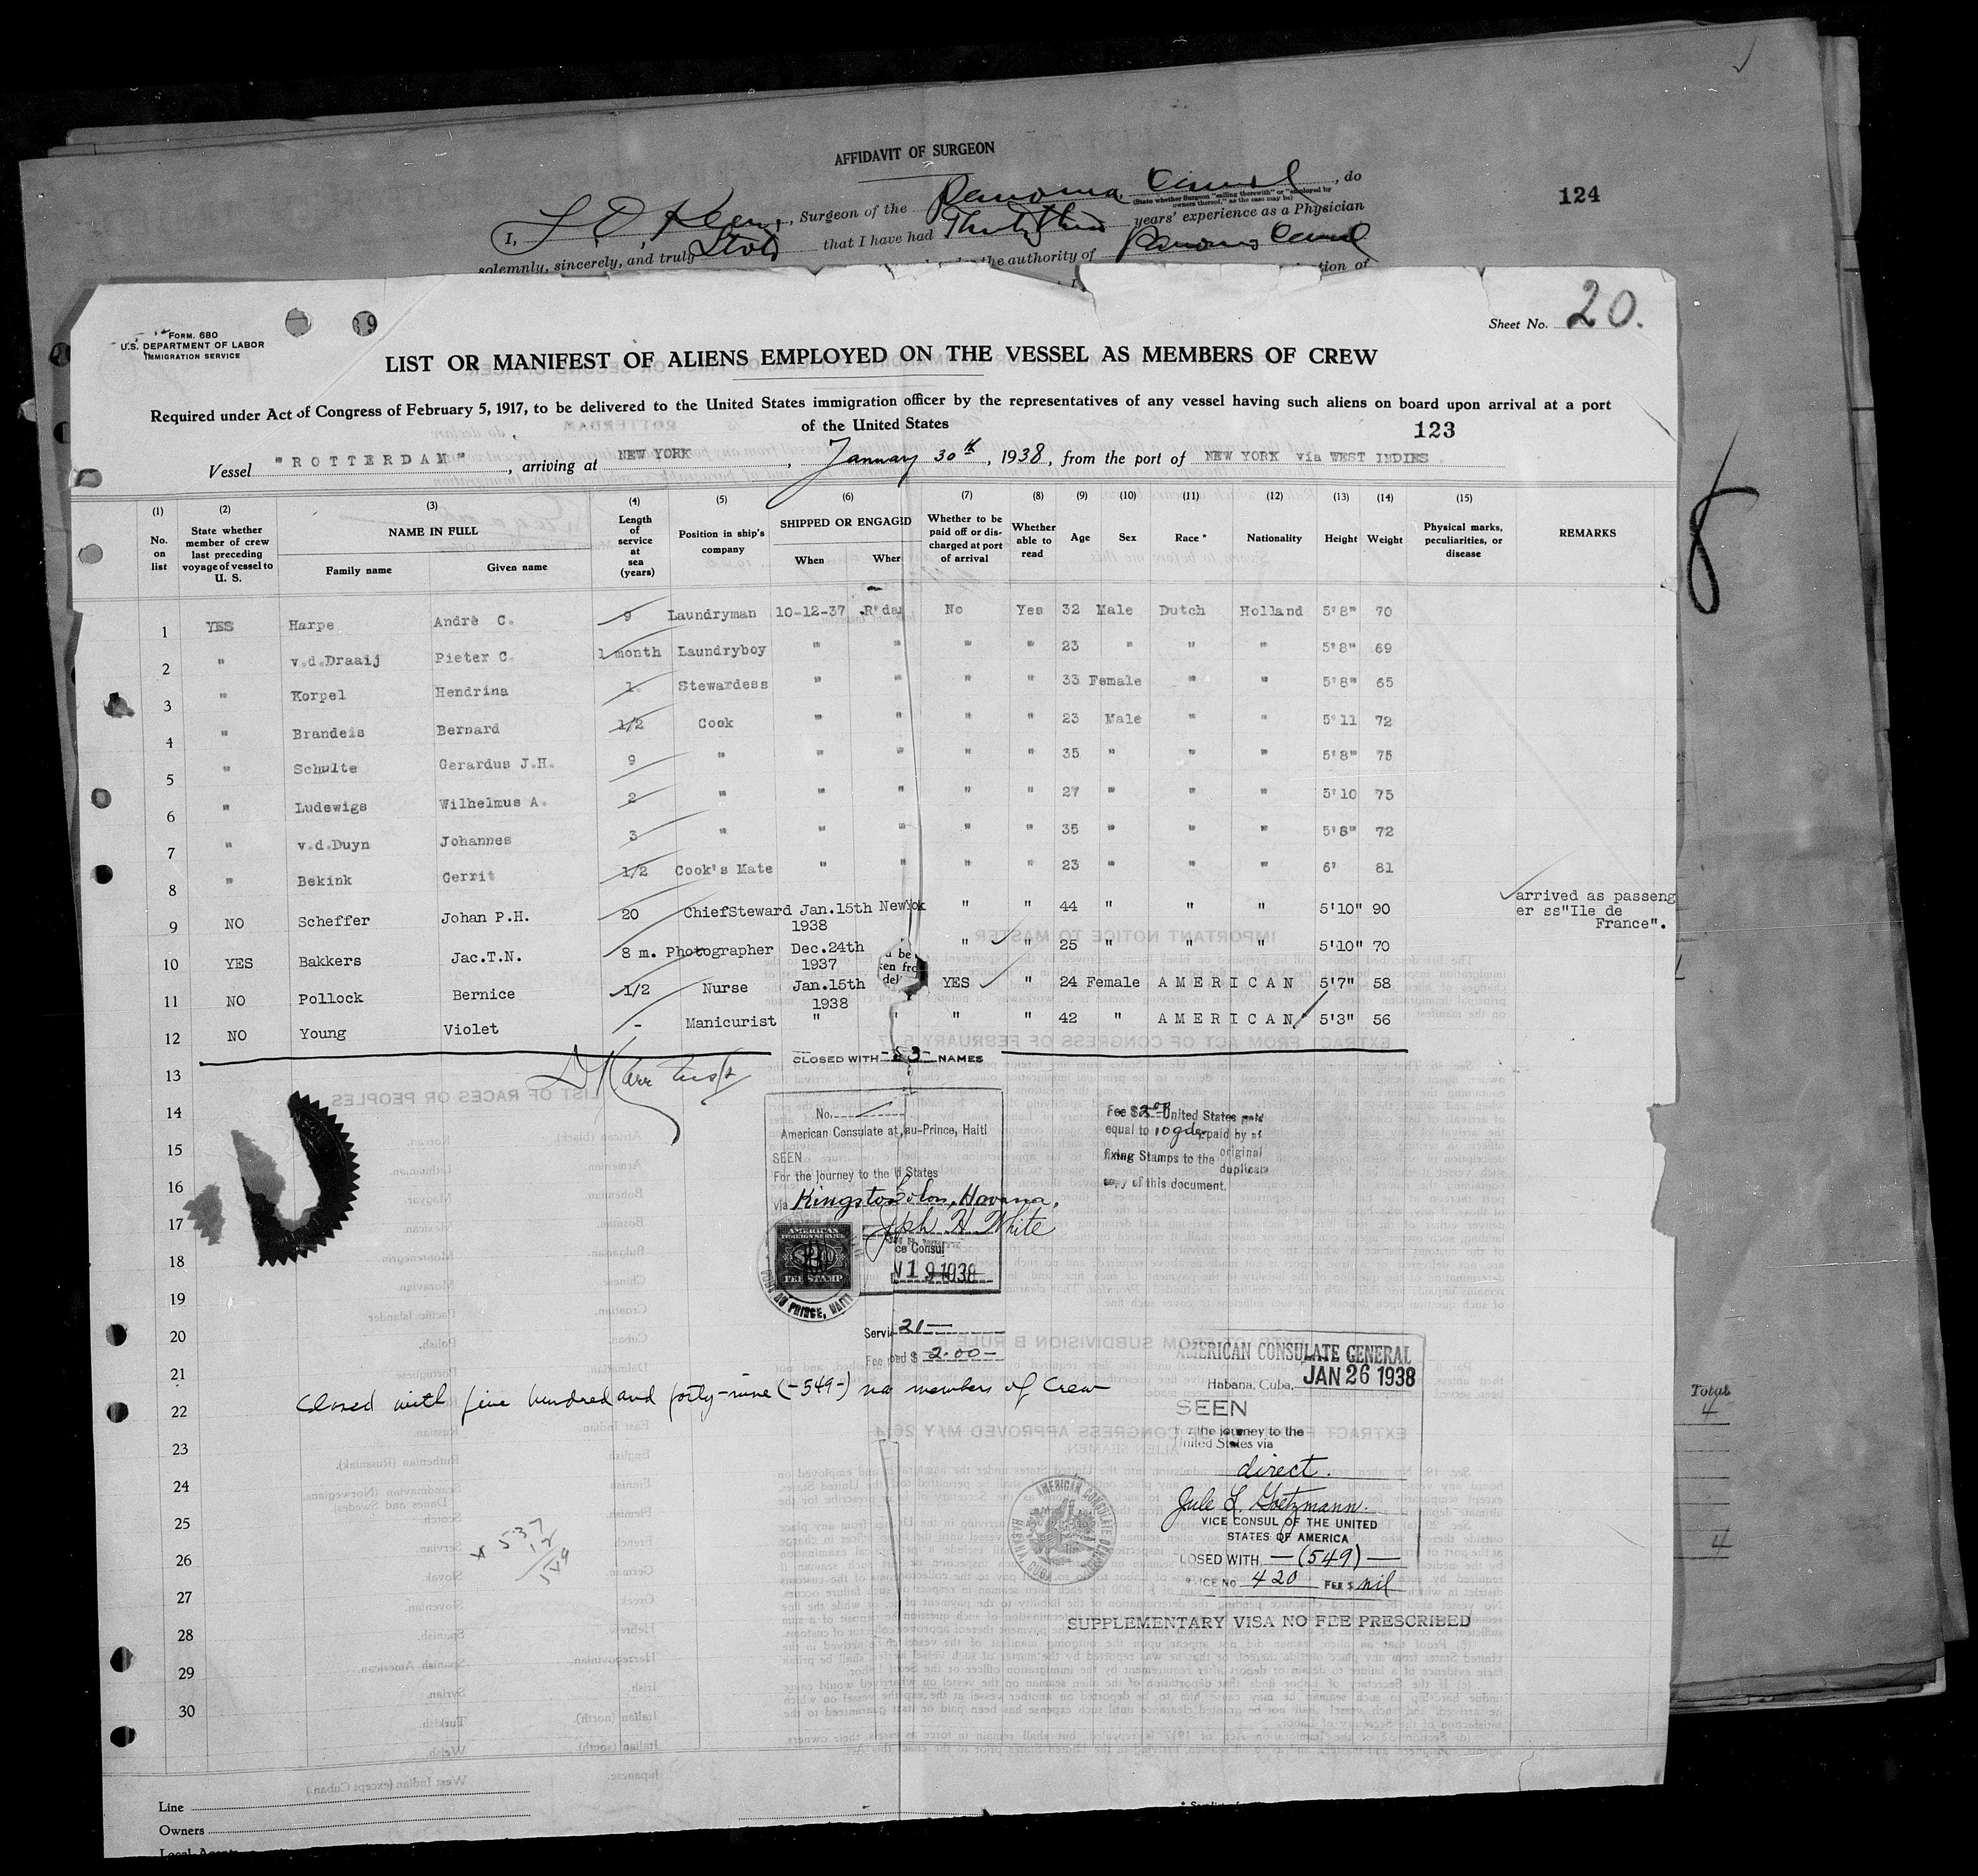 AFFIDAVIT OF SURGEON
124
I, Surgeon of the Panama Canal, do
(State whether Surgeon "sailing therewith" or "employed by
owners thereof," as the case may be)
solemnly, sincerely, and truly that I have had years' experience as a Physician
the authority of Panama Canal
tion of
Sheet No. 20.
FORM. 680
U.S. DEPARTMENT OF LABOR
IMMIGRATION SERVICE
LIST OR MANIFEST OF ALIENS EMPLOYED ON THE VESSEL AS MEMBERS OF CREW
Required under Act of Congress of February 5, 1917, to be delivered to the United States immigration officer by the representatives of any vessel having such aliens on board upon arrival at a port
of the United States
123
Vessel "ROTTERDAM", arriving at NEW YORK, January 30th, 1938, from the port of NEW YORK via WEST INDIES.
(1) (2) (3) (4) (5) (6) (7) (8) (9) (10) (11) (12) (13) (14) (15)
No. on list
State whether member of crew last preceding voyage of vessel to U. S.
NAME IN FULL
Family name Given name
Length of service at sea (years)
Position in ship's company
SHIPPED OR ENGAGED
When Wher
Whether to be paid off or discharged at port of arrival
Whether able to read
Age Sex Race * Nationality Height Weight
Physical marks, peculiarities, or disease
REMARKS
1 YES Harpe Andrè C. 9 Laundryman 10-12-37 R'dam No Yes 32 Male Dutch Holland 5'8" 70
2 " v.d.Draaij Pieter C. 1 month Laundryboy " " " " 23 " " " 5'8" 69
3 " Korpel Hendrina 1. Stewardess " " " " 33 Female " " 5'8" 65
4 " Brandeis Bernard 1/2 Cook " " " " 23 Male " " 5'11 72
5 " Schulte Gerardus J.H. 9 " " " " " 35 " " " 5'8" 75
6 " Ludewigs Wilhelmus A. 2 " " " " " 27 " " " 5'10 75
7 " v.d.Duyn Johannes 3 " " " " " 35 " " " 5'8" 72
8 " Bekink Gerrit 1/2 Cook's Mate " " " " 23 " " " 6' 81
9 NO Scheffer Johan P.H. 20 ChiefSteward Jan.15th 1938 NewYok " " 44 " " " 5'10" 90 arrived as passeng
er ss"Ile de
France".
10 YES Bakkers Jac.T.N. 8 m. Photographer Dec.24th 1937 " " 25 " " " 5'10" 70
11 NO Pollock Bernice 1/2 Nurse Jan.15th 1938 YES " 24 Female AMERICAN 5'7" 58
12 NO Young Violet - Manicurist " " " " 42 " AMERICAN 5'3" 56
CLOSED WITH NAMES
13
14
15
16
17
18
19
20
21
22
23
24
25
26
27
28
29
30
No.
American Consulate at au-Prince, Haiti
SEEN
For the journey to the States
via Kingston Colon, Havana,
H White
ce Consul
N 19 1938
AMERICAN
FOREIGN SERVICE
FEE STAMP
AU PRINCE, HAITI
Servi 21—
Fee $ 2.00—
Fee $2.00 United States gold
equal to 10 gdes paid by af
fixing Stamps to the original
duplicate
copy of this document.
Closed with five hundred and forty-nine (-549-) members of Crew
537
12
549
AMERICAN CONSULATE GENERAL
JAN 26 1938
Habana, Cuba,
SEEN
the journey to the
United States via
direct.
Jule L. Goetzmann
VICE CONSUL OF THE UNITED
STATES OF AMERICA
LOSED WITH —(549)—
ICE NO 420 FEE $ nil
AMERICAN CONSULATE GENERAL
HABANA, CUBA
SUPPLEMENTARY VISA NO FEE PRESCRIBED
Total
4
4
Line
Owners